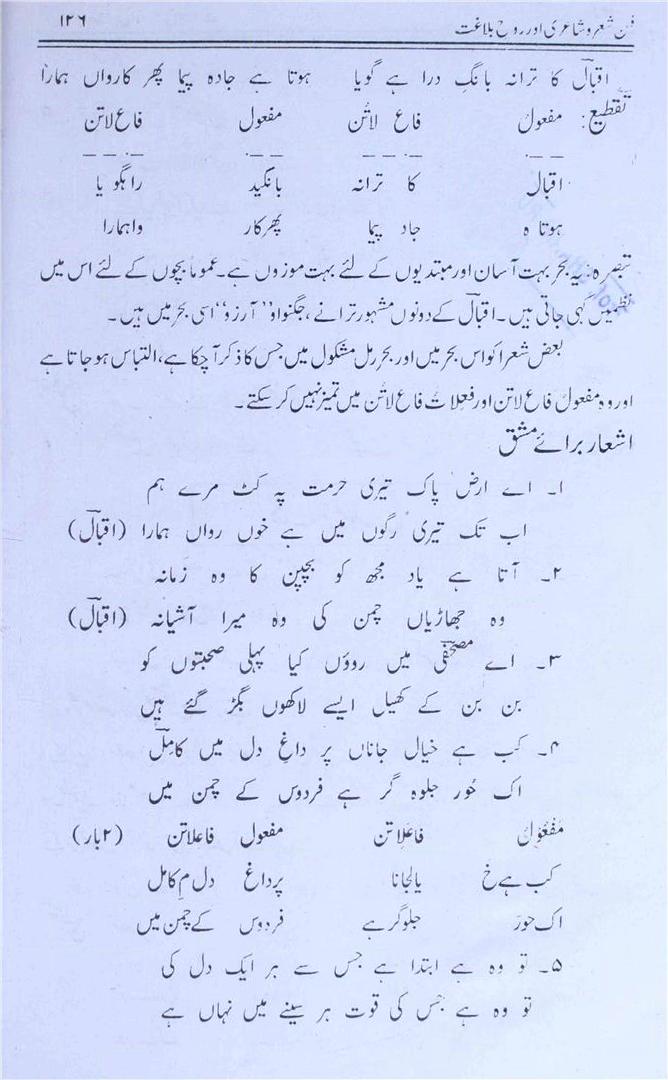 فن شعر و شاعری اور روح بلاغت ۱۲۶
اقبالؔ کا ترانہ بانگِ درا ہے گویا ہوتا ہے جادہ پیما پھر کارواں ہمارا
تقطیع: مفعول فاع لاتن مفعول فاع لاتن
– – · – · – – – – · – · – –
اقبال کا ترانہ بانگید راہگویا
ہوتا ہ جاد پیما پھرکار واہمارا
تبصرہ: یہ بحر بہت آسان اور مبتدیوں کے لئے بہت موزوں ہے۔ عموماً بچوں کے لئے اس میں
نظمیں کہی جاتی ہیں۔ اقبالؔ کے دونوں مشہور ترانے، جگنو او "آرزو" اسی بحر میں ہیں۔
بعض شعرا کو اس بحر میں اور بحر رمل مشکول میں جس کا ذکر آ چکا ہے، التباس ہو جاتا ہے
اور وہ مفعول فاع لاتن اور فعلات فاع لاتن میں تمیز نہیں کر سکتے۔
اشعار برائے مشق
۱۔ اے ارض پاک تیری حرمت پہ کٹ مرے ہم
اب تک تیری رگوں میں ہے خوں رواں ہمارا (اقبالؔ)
۲۔ آتا ہے یاد مجھ کو بچپن کا وہ زمانہ
وہ جھاڑیاں چمن کی وہ میرا آشیانہ (اقبالؔ)
۳۔ اے مصحفیؔ میں روؤں کیا پہلی صحبتوں کو
بن بن کے کھیل ایسے لاکھوں بگڑ گئے ہیں
۴۔ کب ہے خیال جاناں پر داغِ دل میں کاملؔ
اک حُور جلوہ گر ہے فردوس کے چمن میں
مَفعُولُ فاعلاتن مفعول فاعلاتن (۲ بار)
کب ہے خ یالجانا پرداغ دل مِ کامل
اک حورَ جلوگر ہے فردوس کے چمن میں
۵۔ تو وہ ہے ابتدا ہے جس سے ہر ایک دل کی
تو وہ ہے جس کی قوت ہر سینے میں نہاں ہے